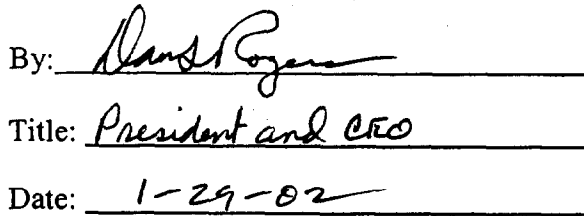 By: Rogers
Title: President and CEO
Date: 1-29-02